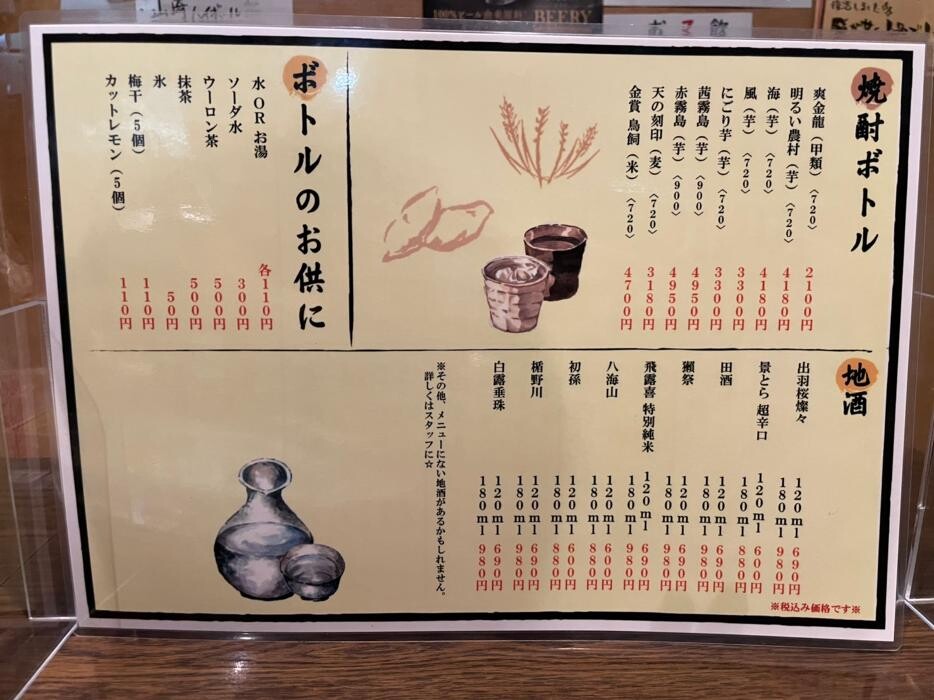 焼酎ボトル
爽金龍（甲類）〈720〉 2100円
明るい農村（芋）〈720〉 4180円
海（芋）〈720〉 4180円
風（芋）〈720〉 3300円
にごり芋（芋）〈720〉 3300円
茜霧島（芋）〈900〉 4950円
赤霧島（芋）〈900〉 4950円
天の刻印（麦）〈720〉 3180円
金賞 鳥飼（米）〈720〉 4700円
ボトルのお供に
水 OR お湯 各110円
ソーダ水 300円
ウーロン茶 500円
抹茶 500円
氷 50円
梅干（5個） 110円
カットレモン（5個） 110円
地酒
出羽桜燦々 120ml 690円
180ml 980円
景とら 超辛口 120ml 600円
180ml 880円
田酒 120ml 690円
180ml 980円
獺祭 120ml 690円
180ml 980円
飛露喜 特別純米 120ml 690円
180ml 980円
八海山 120ml 600円
180ml 880円
初孫 120ml 600円
180ml 880円
楯野川 120ml 690円
180ml 980円
白露垂珠 120ml 690円
180ml 980円
※その他、メニューにない地酒があるかもしれません。
詳しくはスタッフに☆
※税込み価格です※
BEERY